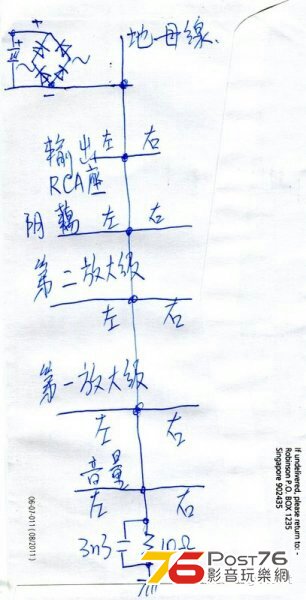 地母線.
+
+
-
輸出 左 右
RCA座
阴藕 左 右
第二放大级
左 右
第一放大级
左 右
音量
左 右
3n3 10Ω
If undelivered, please return to: -
Robinson P.O. BOX 1235
Singapore 902435
06-07-011 (08/2011)
76 POST76
影音玩樂網